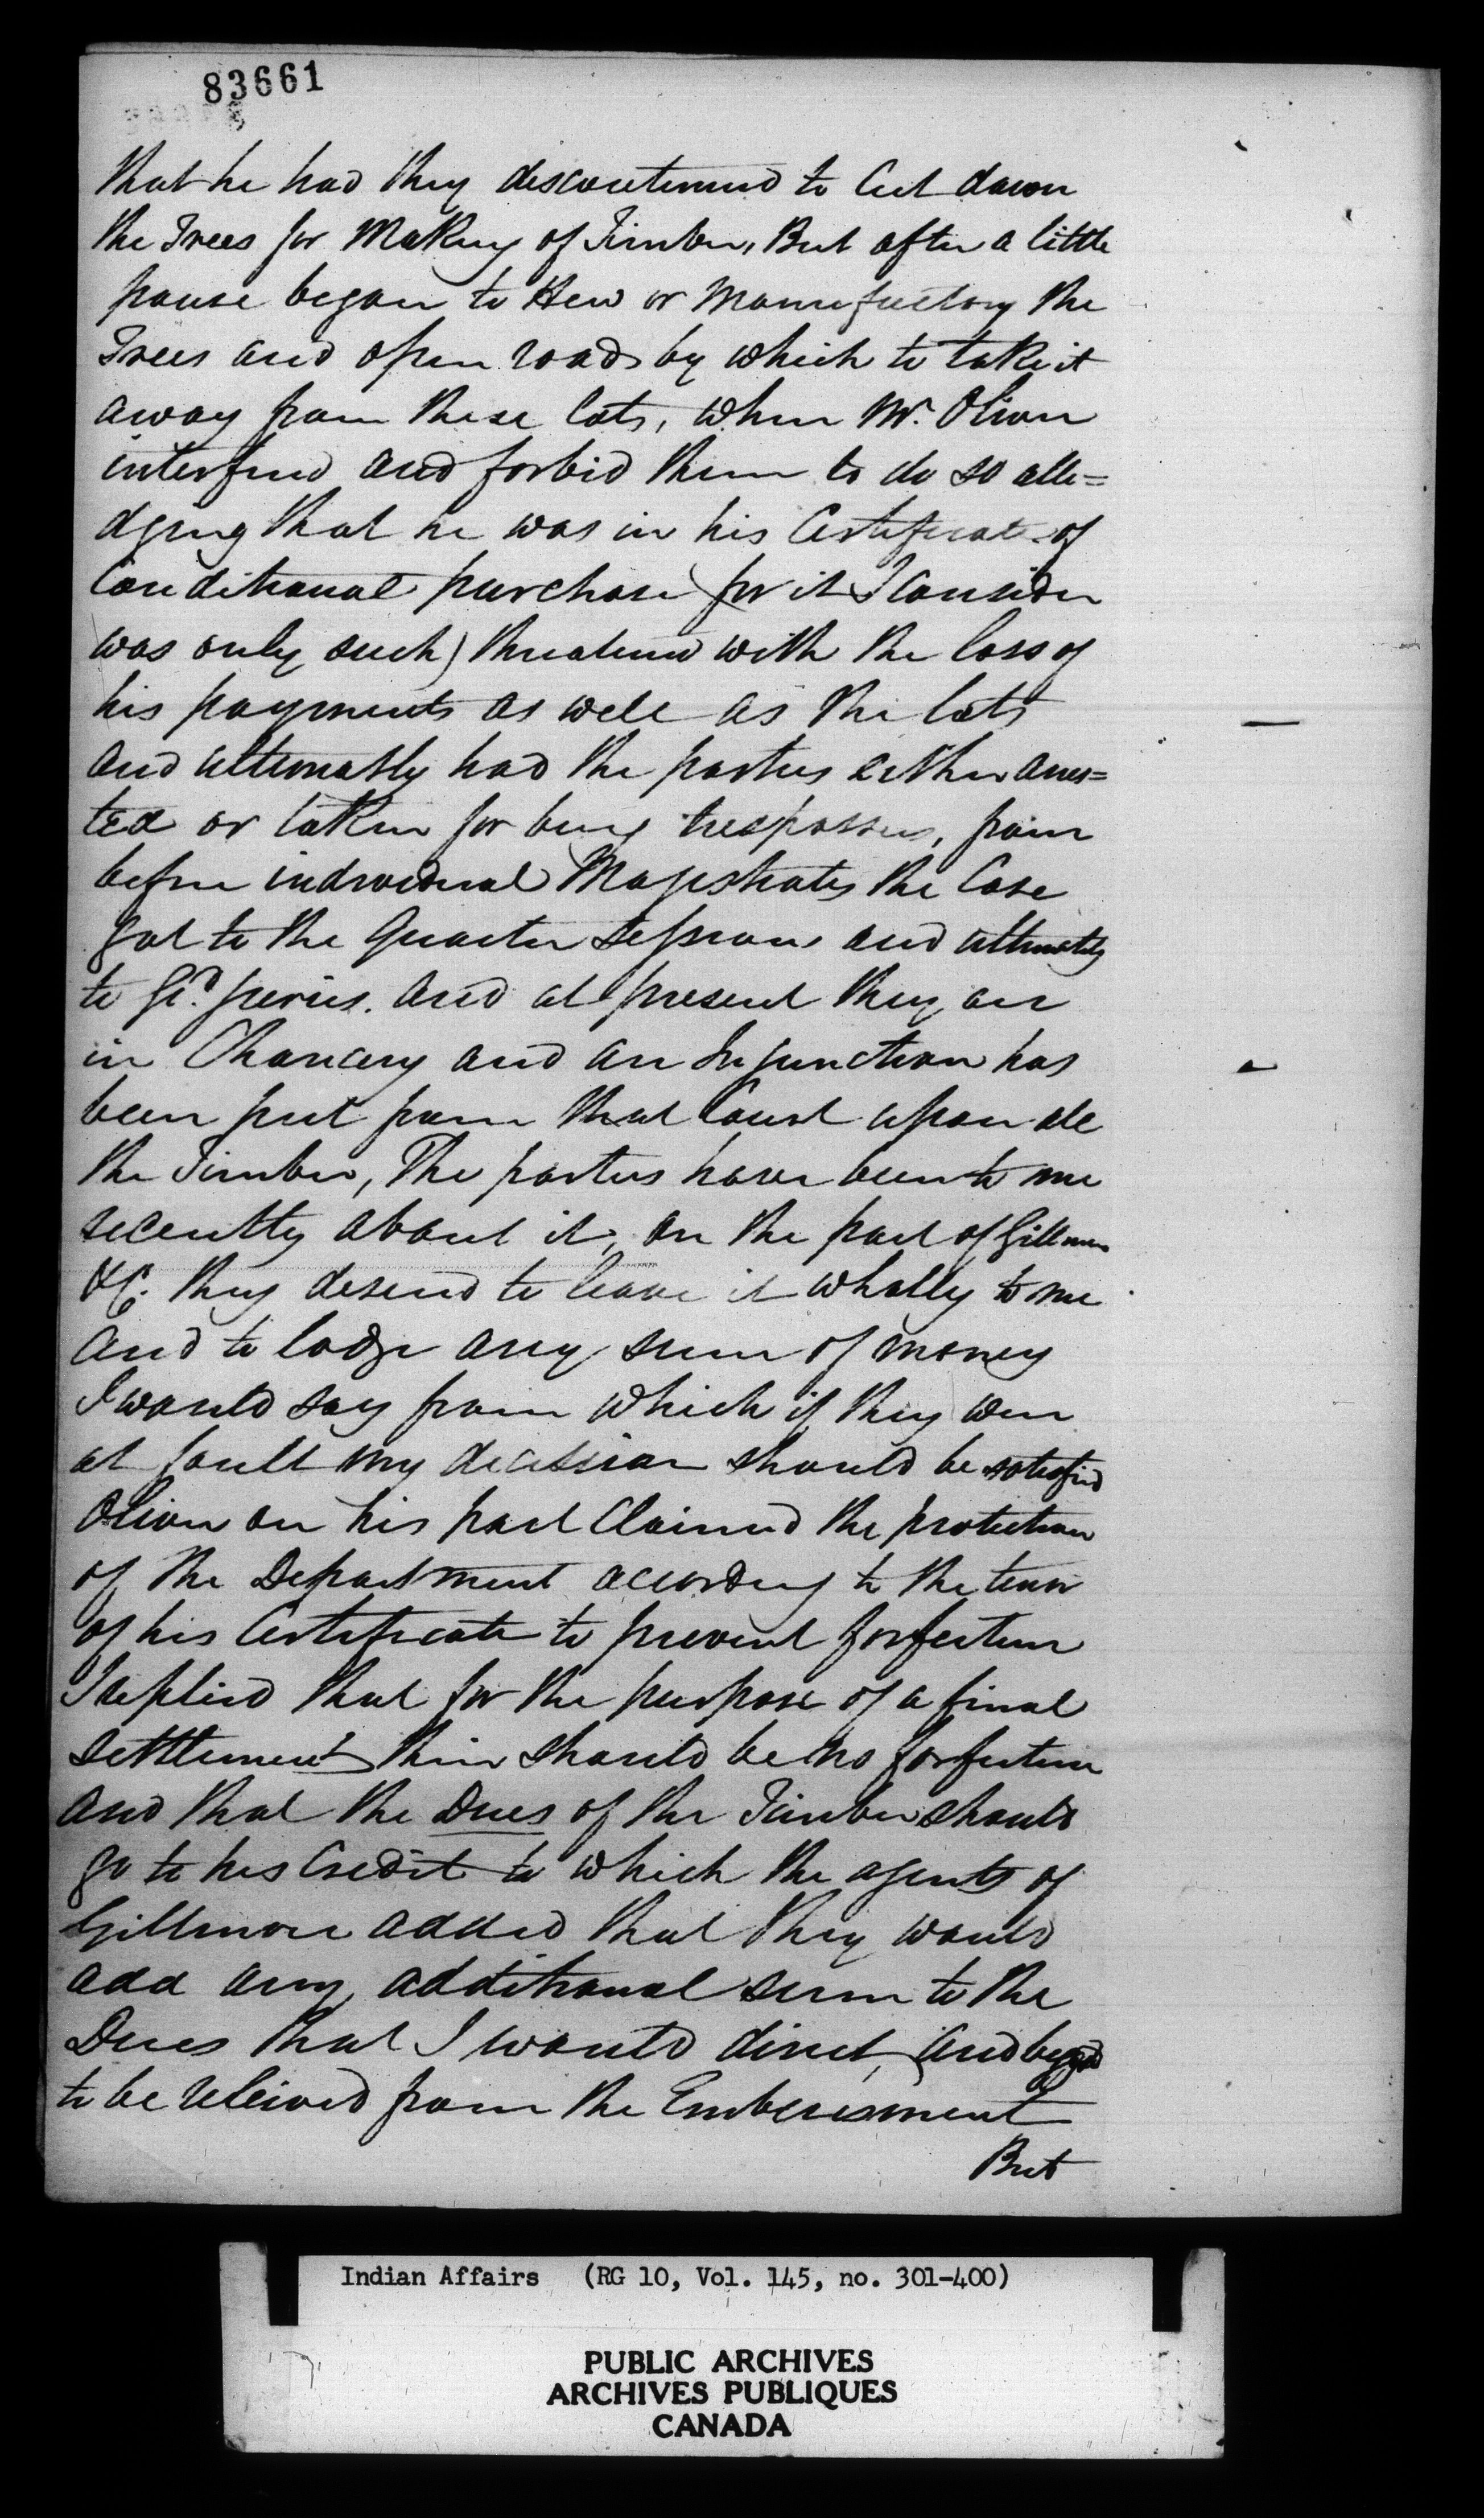 83661
that he had they discontinued to Cut down
the Trees for Making of Timber, But after a little
pause began to Hew or Manufactory the
Trees and open roads by which to take it
away from these lots, when Mr. Olivon
interfered and forbid them to do so alle=
dging that he was in his Certificate of
Conditional purchase (for it I Consider
was only such) threatened with the loss of
his payments as well as the lots
and ultimately had the parties either arres=
ted or taken for being trespassers, from
before individual Magistrates the Case
got to the Quarter Sessions and ultimately
to Gd. juries. And at present they are
in Chancery and an Injunction has
been put from that Court upon all
the Timber, The parties have been to me
recently about it, on the part of Gillmore
&C. they desired to leave it wholly to me
and to lodge any sum of money
I would say from which if they were
at fault my decission should be satisfied
Olivon on his part Claimed the protection
of the Department according to the tenor
of his Certificate to prevent forfeiture
I replied that for the purpose of a final
settlement their should be no forfeiture
and that the Dues of the Timber should
go to his Credit to which the agents of
Gillmore added that they would
add any additional sum to the
Dues that I would direct, and begged
to be releived from the
But
Indian Affairs (RG 10, Vol. 145, no. 301-400)
PUBLIC ARCHIVES
ARCHIVES PUBLIQUES
CANADA